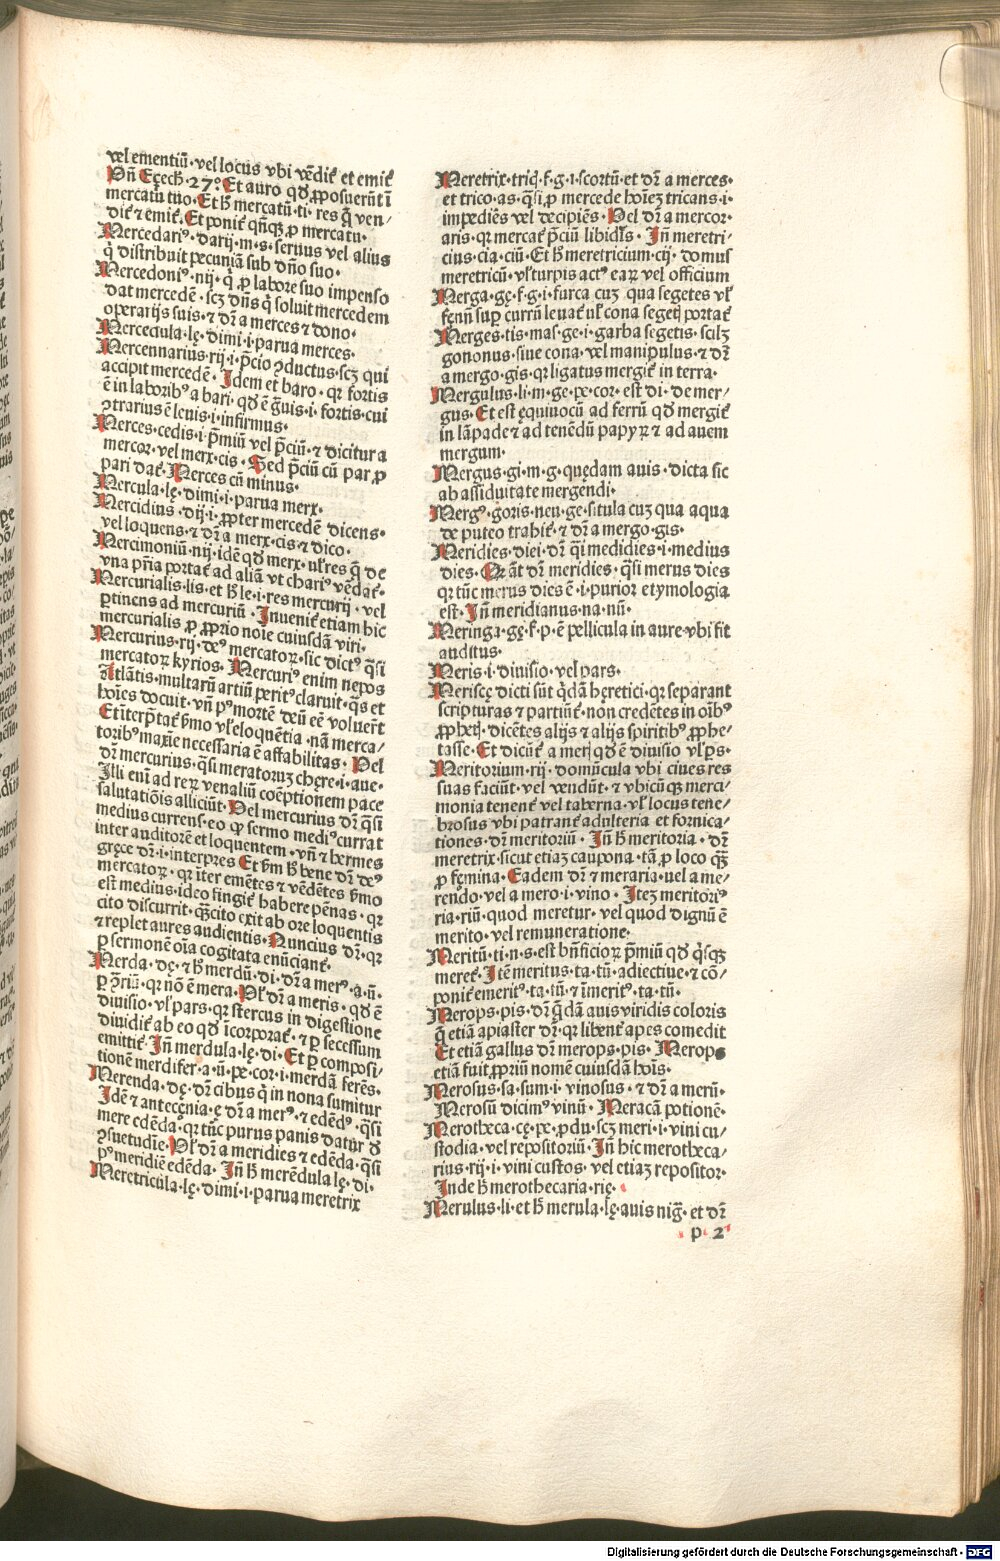 vel ementiū·vel locus vbi vēdit̄ et emit̄
Vñ Eçech̄·27°·Et auro qḋ ꝓposuerūt ī
mercatū tuo·Et h̄ mercatū·ti·res q̄ ven/
dit̄ ⁊ emit̄·Et ponit̄ qñqꝫ ꝓ mercatu·
Mercedariꝰ·darij·m·s·seruus vel alius
q̇ distribuit pecuniā sub dño suo·
Mercedoniꝰ·nij·q̇ ꝓ labore suo impenso
dat mercedē·scꝫ dñs q̇ soluit mercedem
operarijs suis·⁊ dr̄ a merces ⁊ dono·
Mercedula·lę·dimi·i·parua merces·
Mercennarius·rij·i·p̄cio ꝯductus·scꝫ qui
accipit mercedē·Idem et baro·qꝛ fortis
ē in laboribꝰ a bari·qḋ ē g̃uis·i·fortis·cui
ꝯtrarius ē leuis·i·infirmus·
Merces·cedis·i·p̄miū vel p̄ciū·⁊ dicitur a
mercor·vel merx·cis·Sed p̄ciū cū par ꝓ
pari dat̄·Merces cū minus·
Mercula·lę·dimi·i·parua merx·
Mercidius·dij·i·ꝓpter mercedē dicens·
vel loquens·⁊ dr̄ a merx·cis·⁊ dico·
Mercimoniū·nij·idē qḋ merx·ul̄ res q̄ de
vna pr̄ia portat̄ ad aliā vt chariꝰ vēdat̄·
Mercurialis·lis·et h̄ le·i·res mercurij·vel
ꝑtinens ad mercuriū·Inuenit̄ etiam hic
mercurialis ꝓ ꝓprio noīe cuiusdā viri·
Mercurius·rij·deꝰ mercatoꝝ·sic dictꝰ q̄si
mercatoꝝ kyrios·Mercuriꝰ enim nepos
Atlātis·multarū artiū peritꝰ claruit·q̄s et
hoīes docuit·vñ pꝰ mortē deū eē voluer̄t
Et īterp̄tat̄ ẜmo vl̓ eloquētia·nā merca/
toribꝰ maxīe necessaria ē affabilitas·Vel
dr̄ mercurius·q̄si meratoruꝫ chęre·i·aue·
Illi enī ad reꝝ venaliū coēptionem pace
salutatiōis alliciūt·Vel mercurius dr̄ q̄si
medius currens·eo ꝙ sermo mediꝰ currat
inter auditorē et loquentem·vñ ⁊ hermes
gręce dr̄·i·interpres Et ẜm h̄ bene dr̄ deꝰ
mercatoꝝ·qꝛ īter emētes ⁊ vēdētes ẜmo
est medius·ideo fingit̄ habere pēnas·qꝛ
cito discurrit·q̄scito exit ab ore loquentis
⁊ replet aures audientis·Nuncius dr̄·qꝛ
ꝑ sermonē oīa cogitata enūciant̄·
Merda·dę·⁊ h̄ merdū·di·dr̄ a merꝰ·a·ū·
ꝑ ꝯr̄iū·qꝛ nō ē mera·Vl̓ dr̄ a meris·qḋ ē
diuisio·vl̓ pars·qꝛ stercus in digestione
diuidit̄ ab eo qḋ īcorporat̄·⁊ ꝑ secessum
emittit̄·Iñ merdula·lę·di·Et ꝑ composi/
tionē merdifer·a·ū·pe·cor·i·merdā ferēs·
Merenda·dę·dr̄ cibus q̇ in nona sumitur
Idē ⁊ antecęnia·ę dr̄ a merꝰ·⁊ edēdꝰ·q̄si
mere edēda·qꝛ tūc purus panis datur ḋ
ꝯsuetudīe·Vl̓ dr̄ a meridies ⁊ edēda·q̄si
pꝰ meridiē edēda·Iñ h̄ merēdula·lę·di·
Meretricula·lę·dimi·i·parua meretrix
Meretrix·triq̇·f·g·i·scortū·et dr̄ a merces·
et trico·as·q̄si ꝓ mercede hoīeꝫ tricans·i·
impediēs vel decipiēs·Vel dr̄ a mercor·
aris·qꝛ mercat̄ p̄ciū libidīs·Iñ meretri/
cius·cia·ciū·Et h̄ meretricium·cij·domus
meretricū·vl̓ turpis actꝰ eaꝝ vel officium
Merga·gę·f·g·i·furca cuꝫ qua segetes vl̓
fęnū suꝑ currū leuat̄ ul̓ cona segetꝫ portat̄
Merges·tis·mas·ge·i·garba segetis·scilꝫ
gononus·siue cona·vel manipulus·⁊ dr̄
a mergo·gis·qꝛ ligatus mergit̄ in terra·
Mergulus·li·m·ge·pe·cor·est di·de mer/
gus·Et est ęquiuocū ad ferrū qḋ mergit̄
in lāpade ⁊ ad tenēdū papyꝝ ⁊ ad auem
mergum·
Mergus·gi·m·g·quędam auis·dicta sic
ab assiduitate mergendi·
Mergꝰ·goris·neu·ge·situla cuꝫ qua aqua
de puteo trahit̄·⁊ dr̄ a mergo·gis·
Meridies·diei·dr̄ q̄si medidies·i·medius
dies·Vel āt dr̄ meridies·q̄si merus dies
qꝛ tūc merus dies ē·i·purior etymologia
est·Iñ meridianus·na·nū·
Meringa·gę·f·p·ē pellicula in aure·vbi fit
auditus·
Meris·i·diuisio·vel pars·
Meriscę dicti sūt q̇dā hęretici·qꝛ separant
scripturas ⁊ partiūt̄·non credētes in oībꝰ
ꝓphetꝭ·dicētes alijs ⁊ alijs spiritibꝰ ꝓphe/
tasse·Et dicūt̄ a merꝭ qḋ ē diuisio vl̓ ps·
Meritorium·rij·domūcula vbi ciues res
suas faciūt·vel vendūt·⁊ vbicūqꝫ merci/
monia tenent̄ vel taberna·vl̓ locus tene/
brosus vbi patrant̄ adulteria et fornica/
tiones·dr̄ meritoriū·Iñ h̄ meritoria·dr̄
meretrix·sicut etiaꝫ caupona·tā ꝓ loco q̄ꝫ
ꝓ fęmina·Eadem dr̄ ⁊ meraria·uel a me/
rendo·vel a mero·i·vino·Iteꝫ meritoriꝰ
ria·riū·quod meretur·vel quod dignū ē
merito·vel remuneratione·
Meritū·ti·n·s·est bñficioꝝ p̄miū qḋ q̇sqꝫ
meret̄·Itē meritus·ta·tū·adiectiue·⁊ cō/
ponit̄ emeritꝰ·ta·tū·⁊ īmeritꝰ·ta·tū·
Merops·pis·dr̄ q̄dā auis viridis coloris
q̄ etiā apiaster dr̄·qꝛ libent̄ apes comedit
Et etiā gallus dr̄ merops·pis·Merops
etiā fuit ꝓpriū nomē cuiusdā hoīs·
Merosus·sa·sum·i·vinosus·⁊ dr̄ a merū·
Merosū dicimꝰ vinū·Meracā potionē·
Merotheca·cę·pe·ꝓdu·scꝫ meri·i·vini cu/
stodia·vel repositoriū·Iñ hic merotheca/
rius·rij·i·vini custos·vel etiaꝫ repositor·
Inde h̄ merothecaria·rię·
Merulus·li·et h̄ merula·lę·auis nig̃·et dr̄
p 2
Digitalisierung gefördert durch die Deutsche Forschungsgemeinschaft - DFG